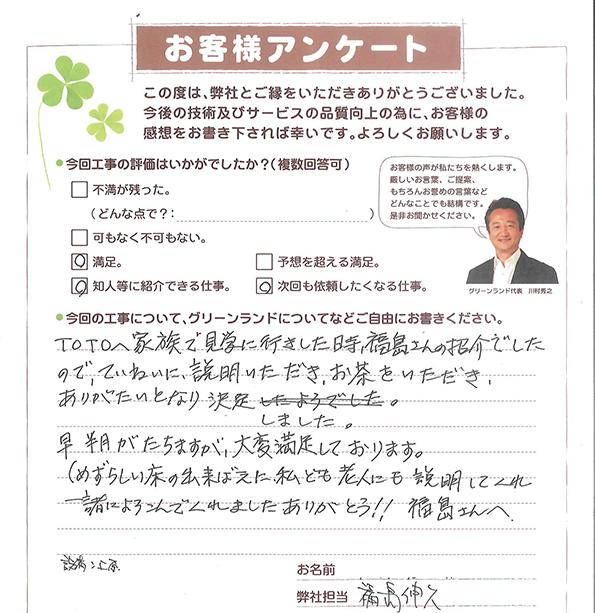 お客様アンケート
この度は、弊社とご縁をいただきありがとうございました。
今後の技術及びサービスの品質向上の為に、お客様の
感想をお書き下されば幸いです。よろしくお願いします。
●今回工事の評価はいかがでしたか？（複数回答可）
不満が残った。
（どんな点で？：　）
可もなく不可もない。
満足。
予想を超える満足。
知人等に紹介できる仕事。
次回も依頼したくなる仕事。
お客様の声が私たちを熱くします。
厳しいお言葉、ご提案、
もちろんお誉めの言葉など
どんなことでも結構です。
是非お聞かせください。
グリーンランド代表　川村秀之
●今回の工事について、グリーンランドについてなどご自由にお書きください。
TOTOへ家族で見学に行きました時、福島さんの紹介でした
ので、ていねいに、説明いただき、お茶をいただき、
ありがたいとなり決定したようでした。
しました。
早半月がたちますが、大変満足しております。
（めずらしい床の出来ばえに、私ども老人にも説明してくれ
一諸によろこんでくれましたありがとう!!　福島さんへ
お名前
弊社担当　福島伸久